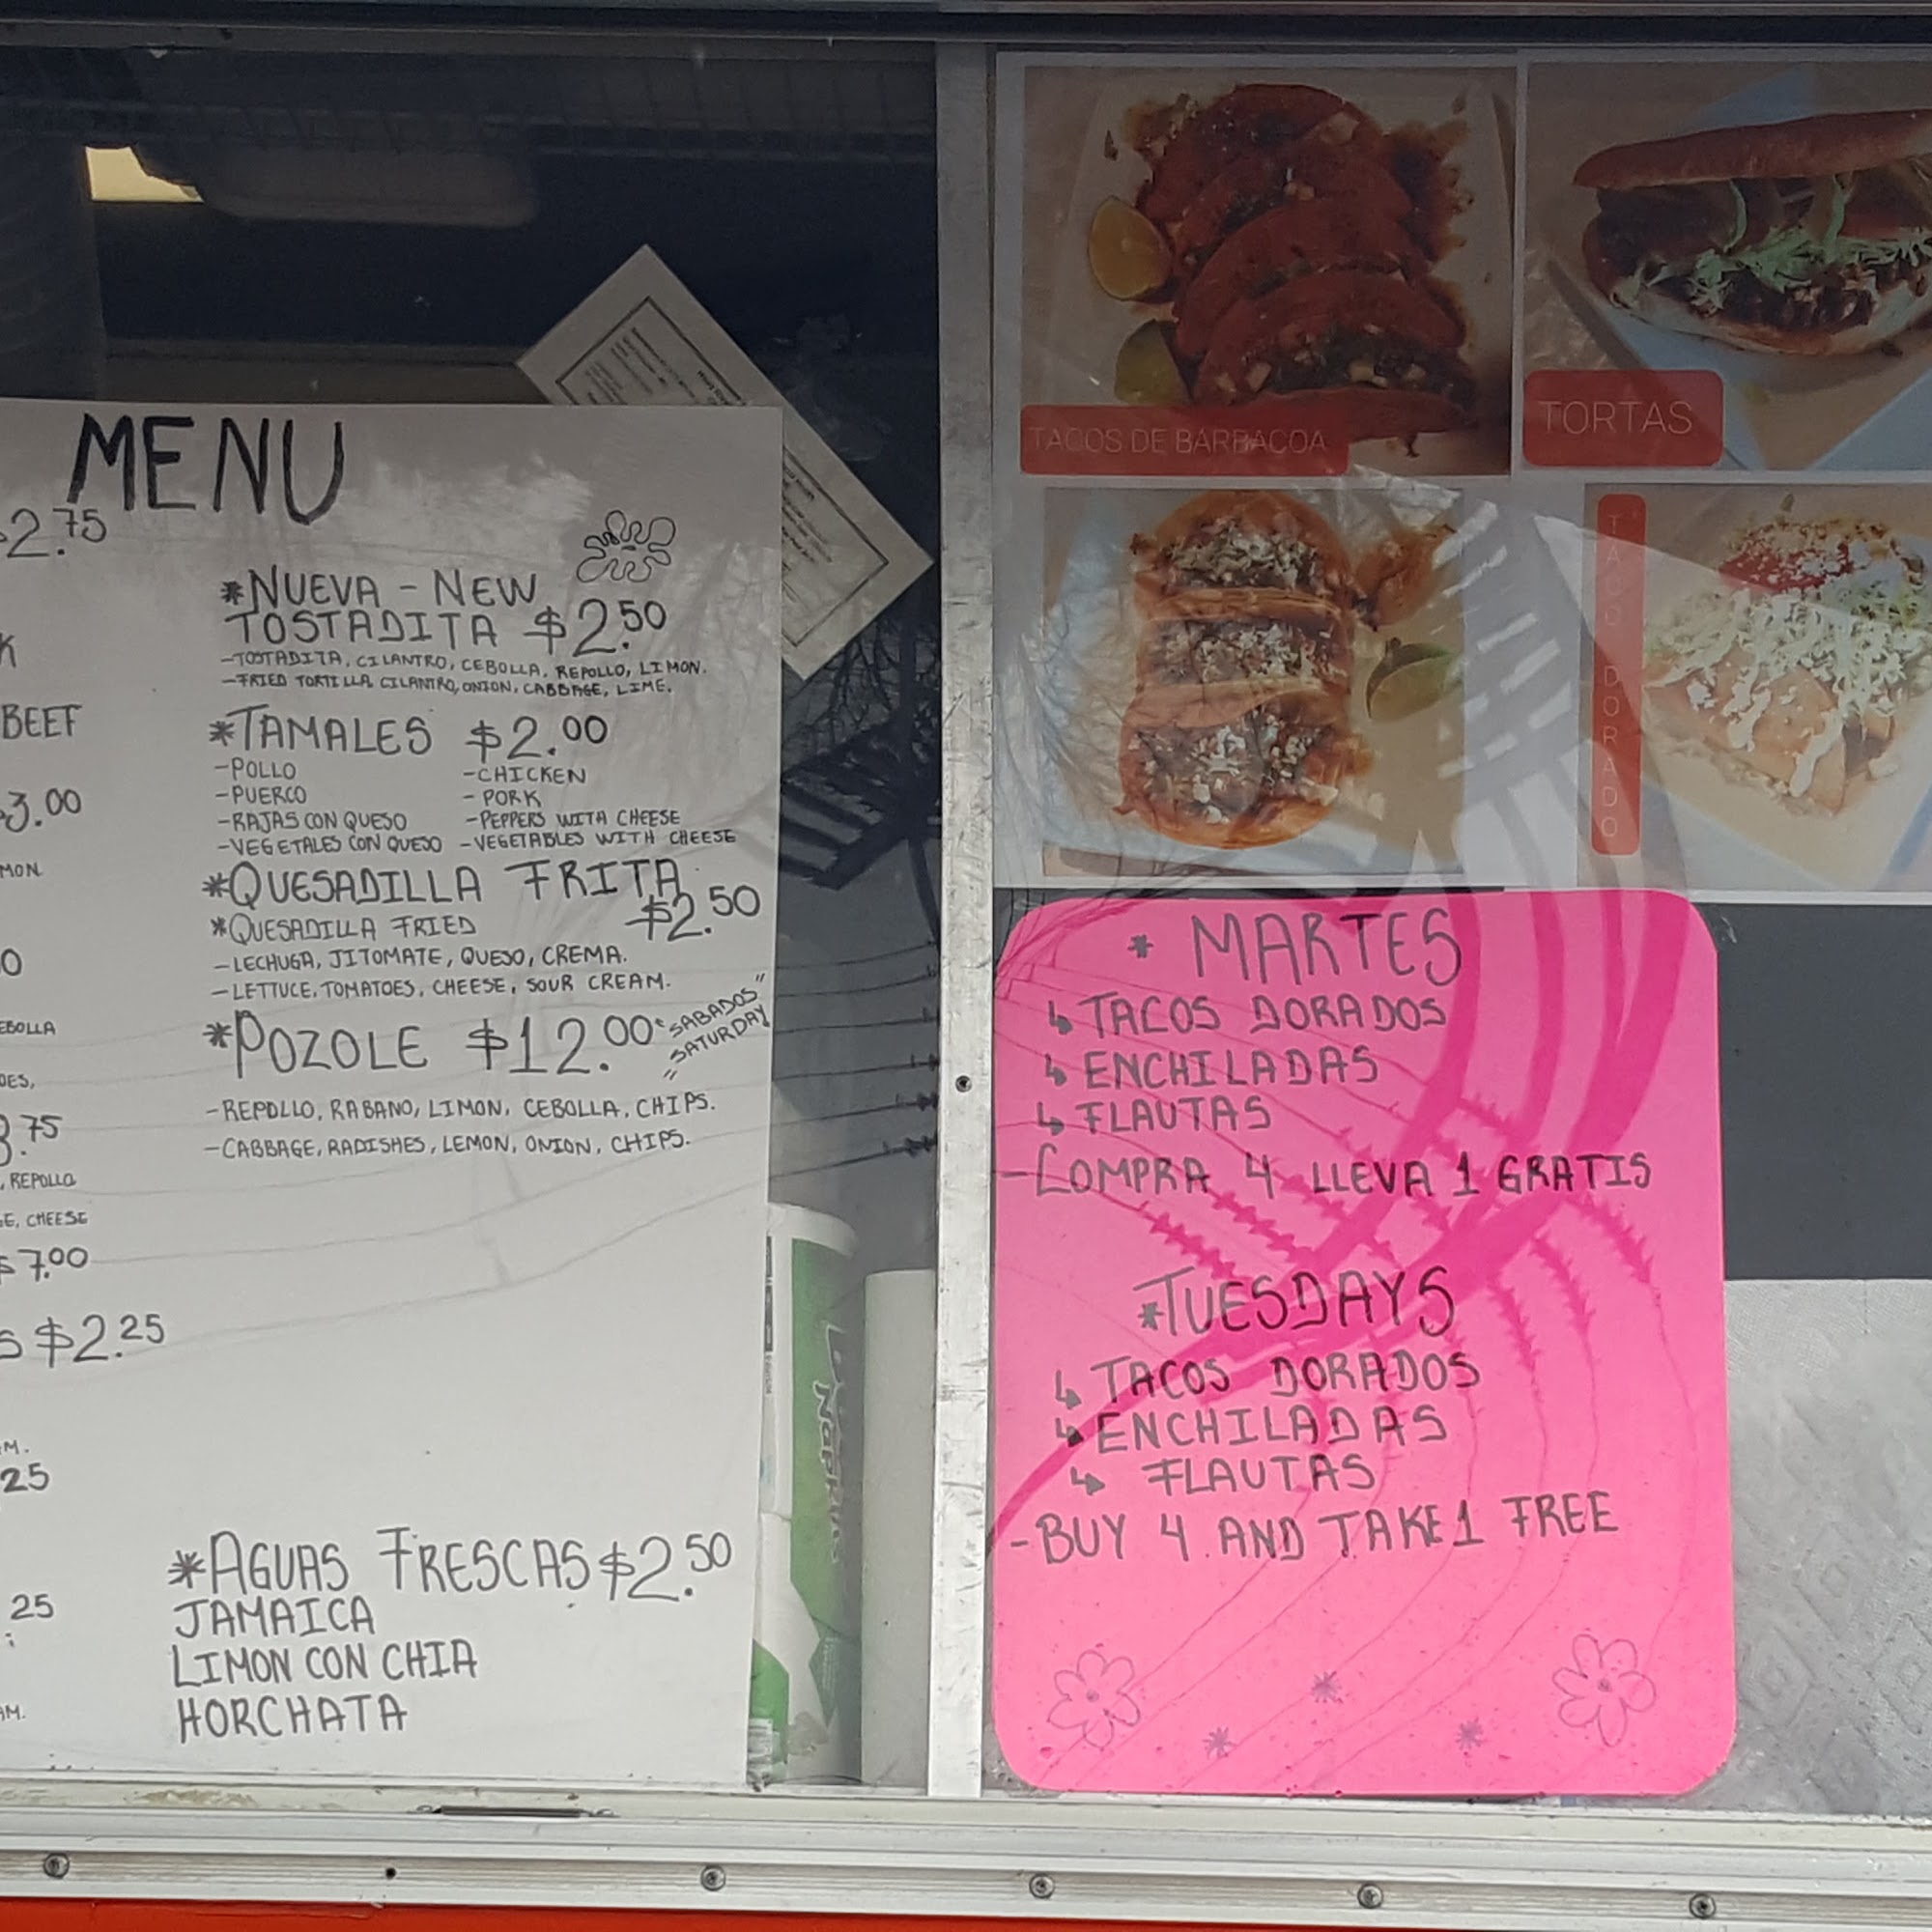 MENU
$2.75
K
BEEF
$3.00
MON.
0
EBOLLA
OES,
3.75
, REPOLLO
GE, CHEESE
$7.00
S $2.25
M.
25
.25
AM.
*NUEVA - NEW
TOSTADITA $2.50
-TOSTADITA, CILANTRO, CEBOLLA, REPOLLO, LIMON.
-FRIED TORTILLA, CILANTRO, ONION, CABBAGE, LIME.
*TAMALES $2.00
-POLLO -CHICKEN
-PUERCO -PORK
-RAJAS CON QUESO -PEPPERS WITH CHEESE
-VEGETALES CON QUESO -VEGETABLES WITH CHEESE
*QUESADILLA FRITA
$2.50
*QUESADILLA FRIED
-LECHUGA, JITOMATE, QUESO, CREMA.
-LETTUCE, TOMATOES, CHEESE, SOUR CREAM.
*POZOLE $12.00 "SABADOS"
"SATURDAY"
-REPOLLO, RABANO, LIMON, CEBOLLA, CHIPS.
-CABBAGE, RADISHES, LEMON, ONION, CHIPS.
*AGUAS FRESCAS $2.50
JAMAICA
LIMON CON CHIA
HORCHATA
TACOS DE BARBACOA
TORTAS
TACO DORADO
* MARTES
↳ TACOS DORADOS
↳ ENCHILADAS
↳ FLAUTAS
-COMPRA 4 LLEVA 1 GRATIS
*TUESDAYS
↳ TACOS DORADOS
↳ ENCHILADAS
↳ FLAUTAS
-BUY 4 AND TAKE 1 FREE